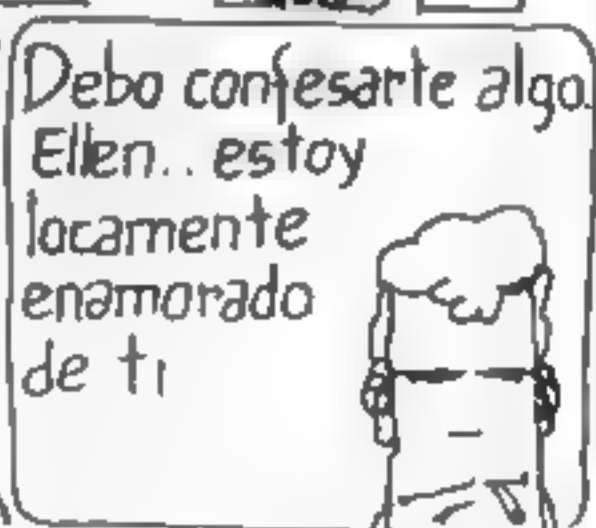 Debo confesarte algo.
Ellen.. estoy
locamente
enamorado
de ti